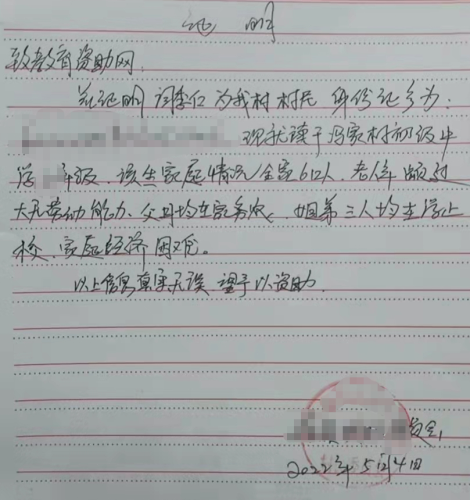 证明
致教育资助网:
兹证明 闫学仁 为我村村民 身份证号为:
现就读于冯家村初级中
学 年级、该生家庭情况、全家6口人、老人年龄过
大无劳动能力、父母均在家务农、姐弟三人均在学上
校、家庭经济困难。
以上信息真实无误、望予以资助.
2022年5月4日